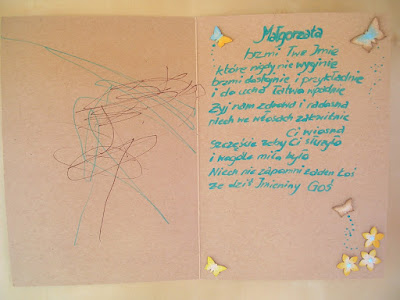 Małgorzata
brzmi Twe Imię
które nigdy nie wyginie
brzmi dostojnie i przykładnie
i do ucha łatwo wpadnie
Żyj nam zdrowo i radośnie
niech we włosach zakwitnie
Ci wiosna
Szczęście żeby Ci służyło
i wogóle miło było
Niech nie zapomni żaden łoś
że dziś Imieniny Goś